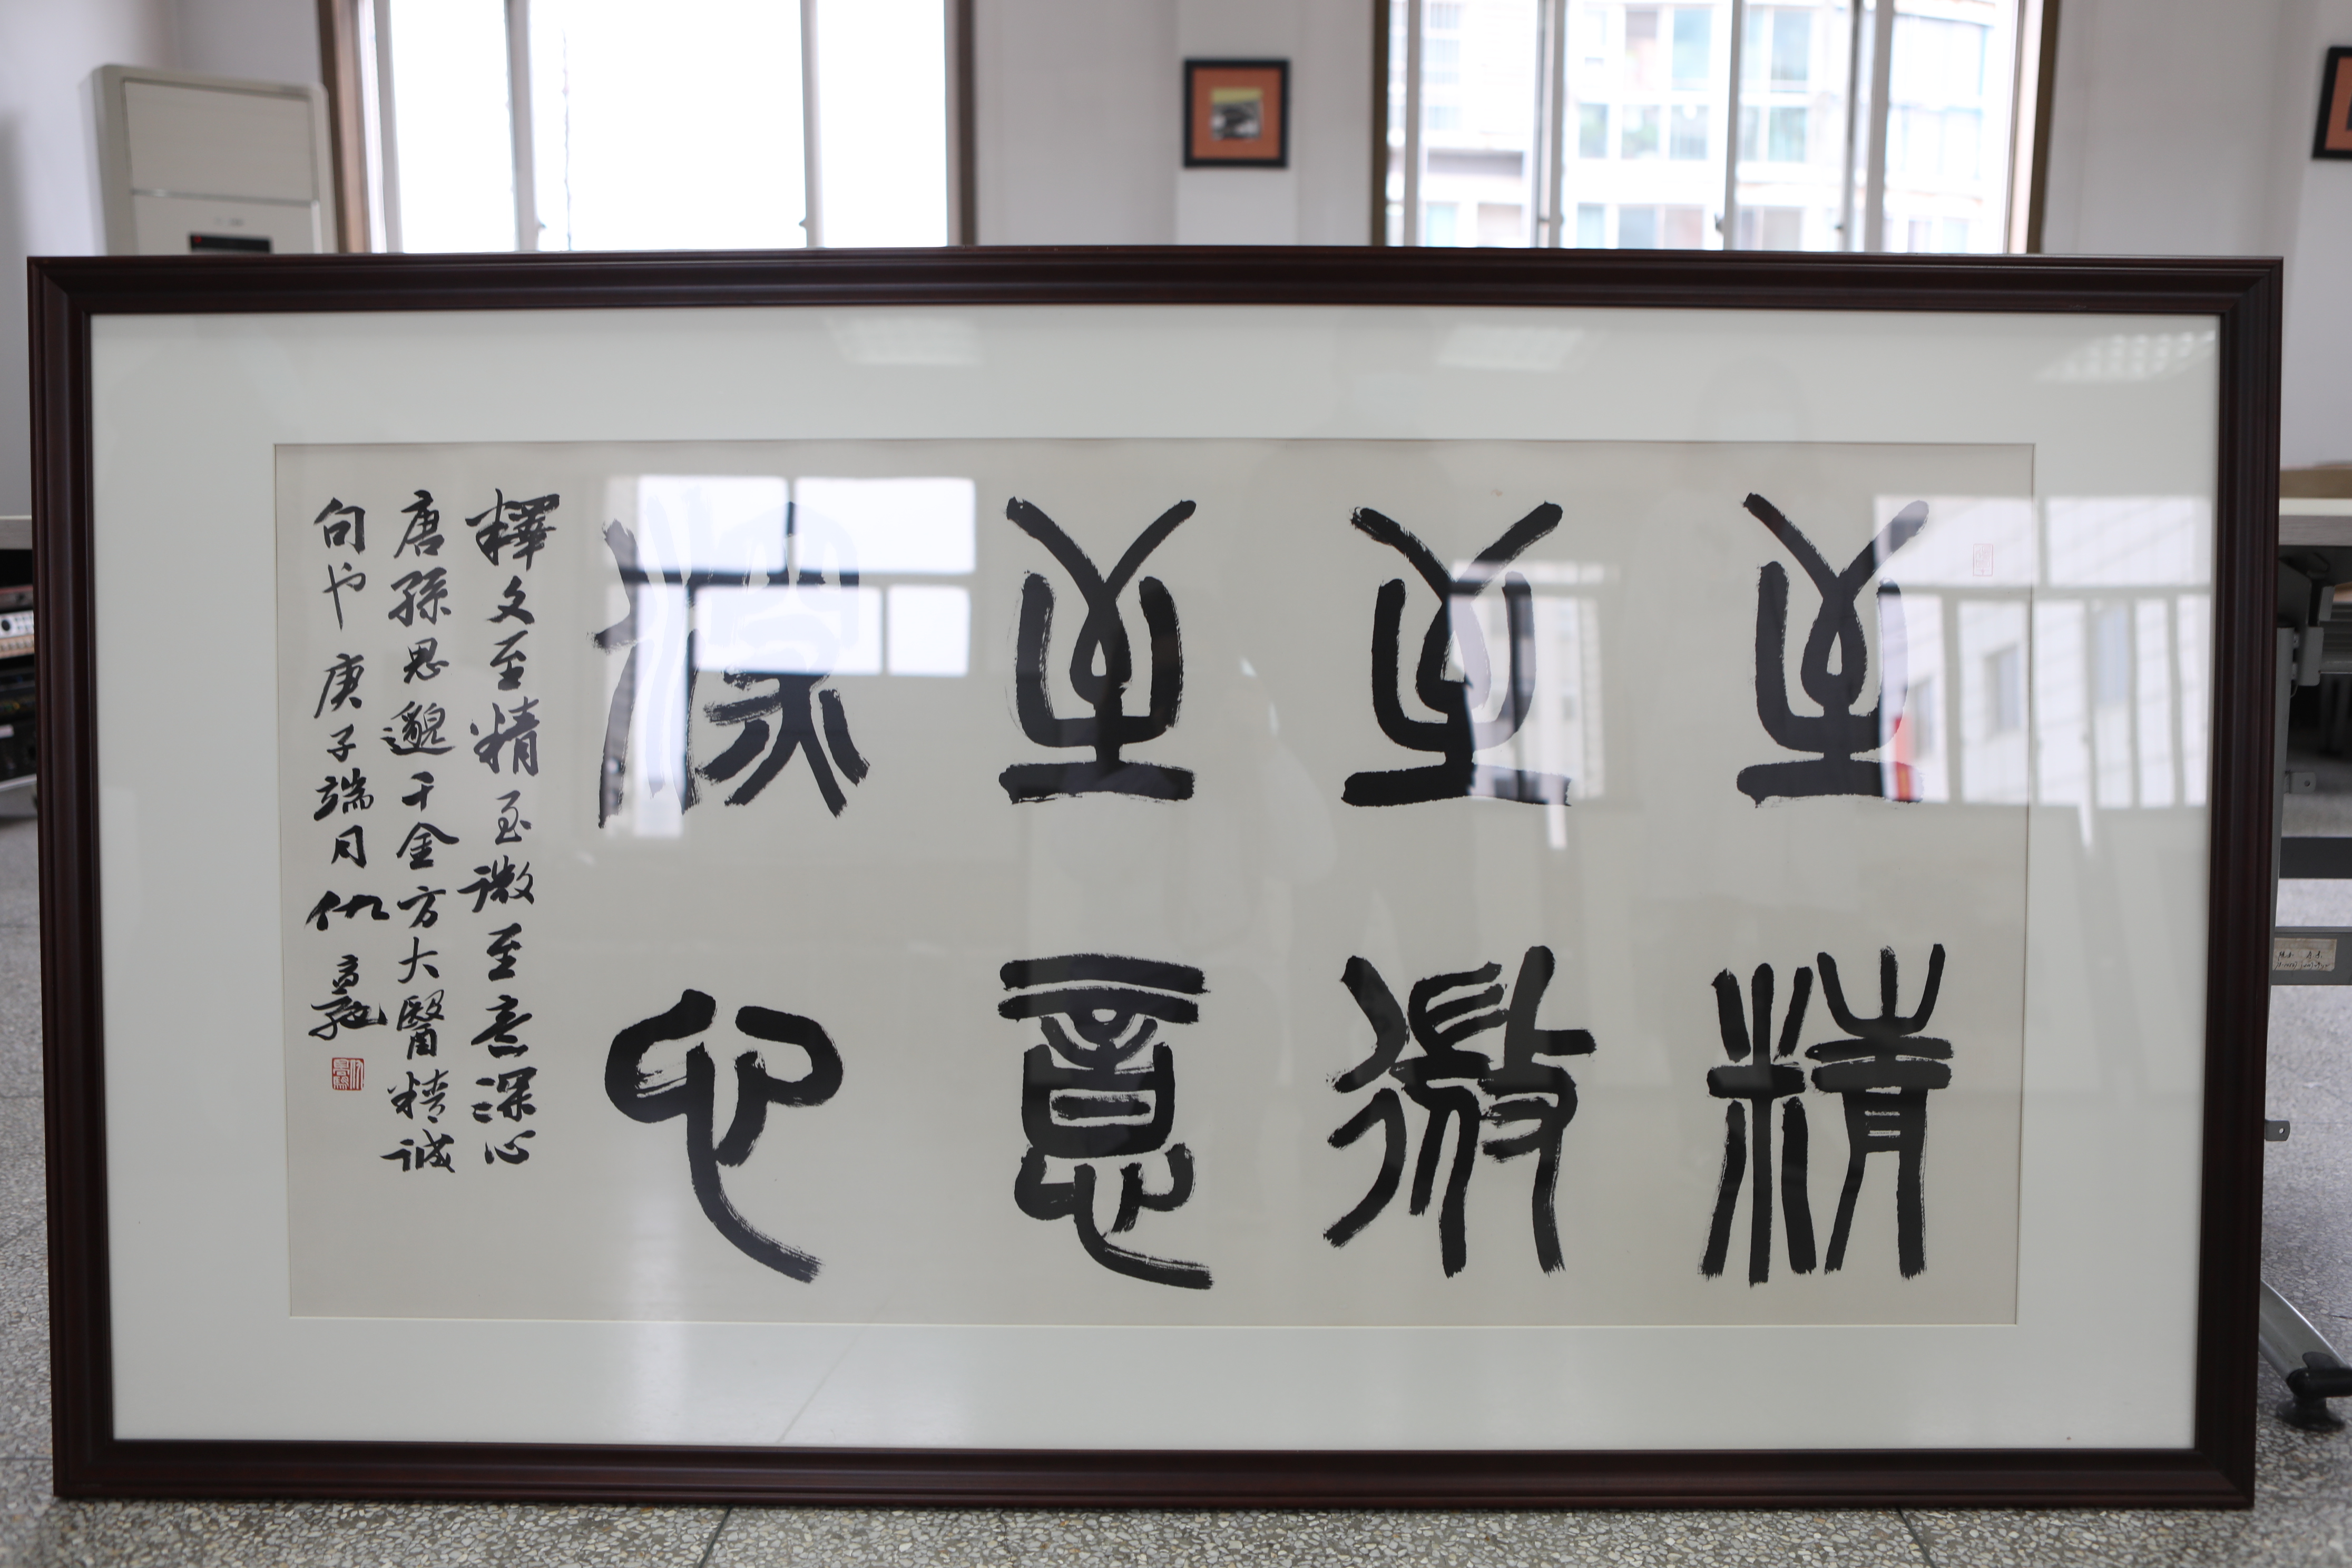 至精
至微
至意
深心
釋文至精至微至意深心
唐孫思邈千金方大醫精誠
句也庚子端月仇高